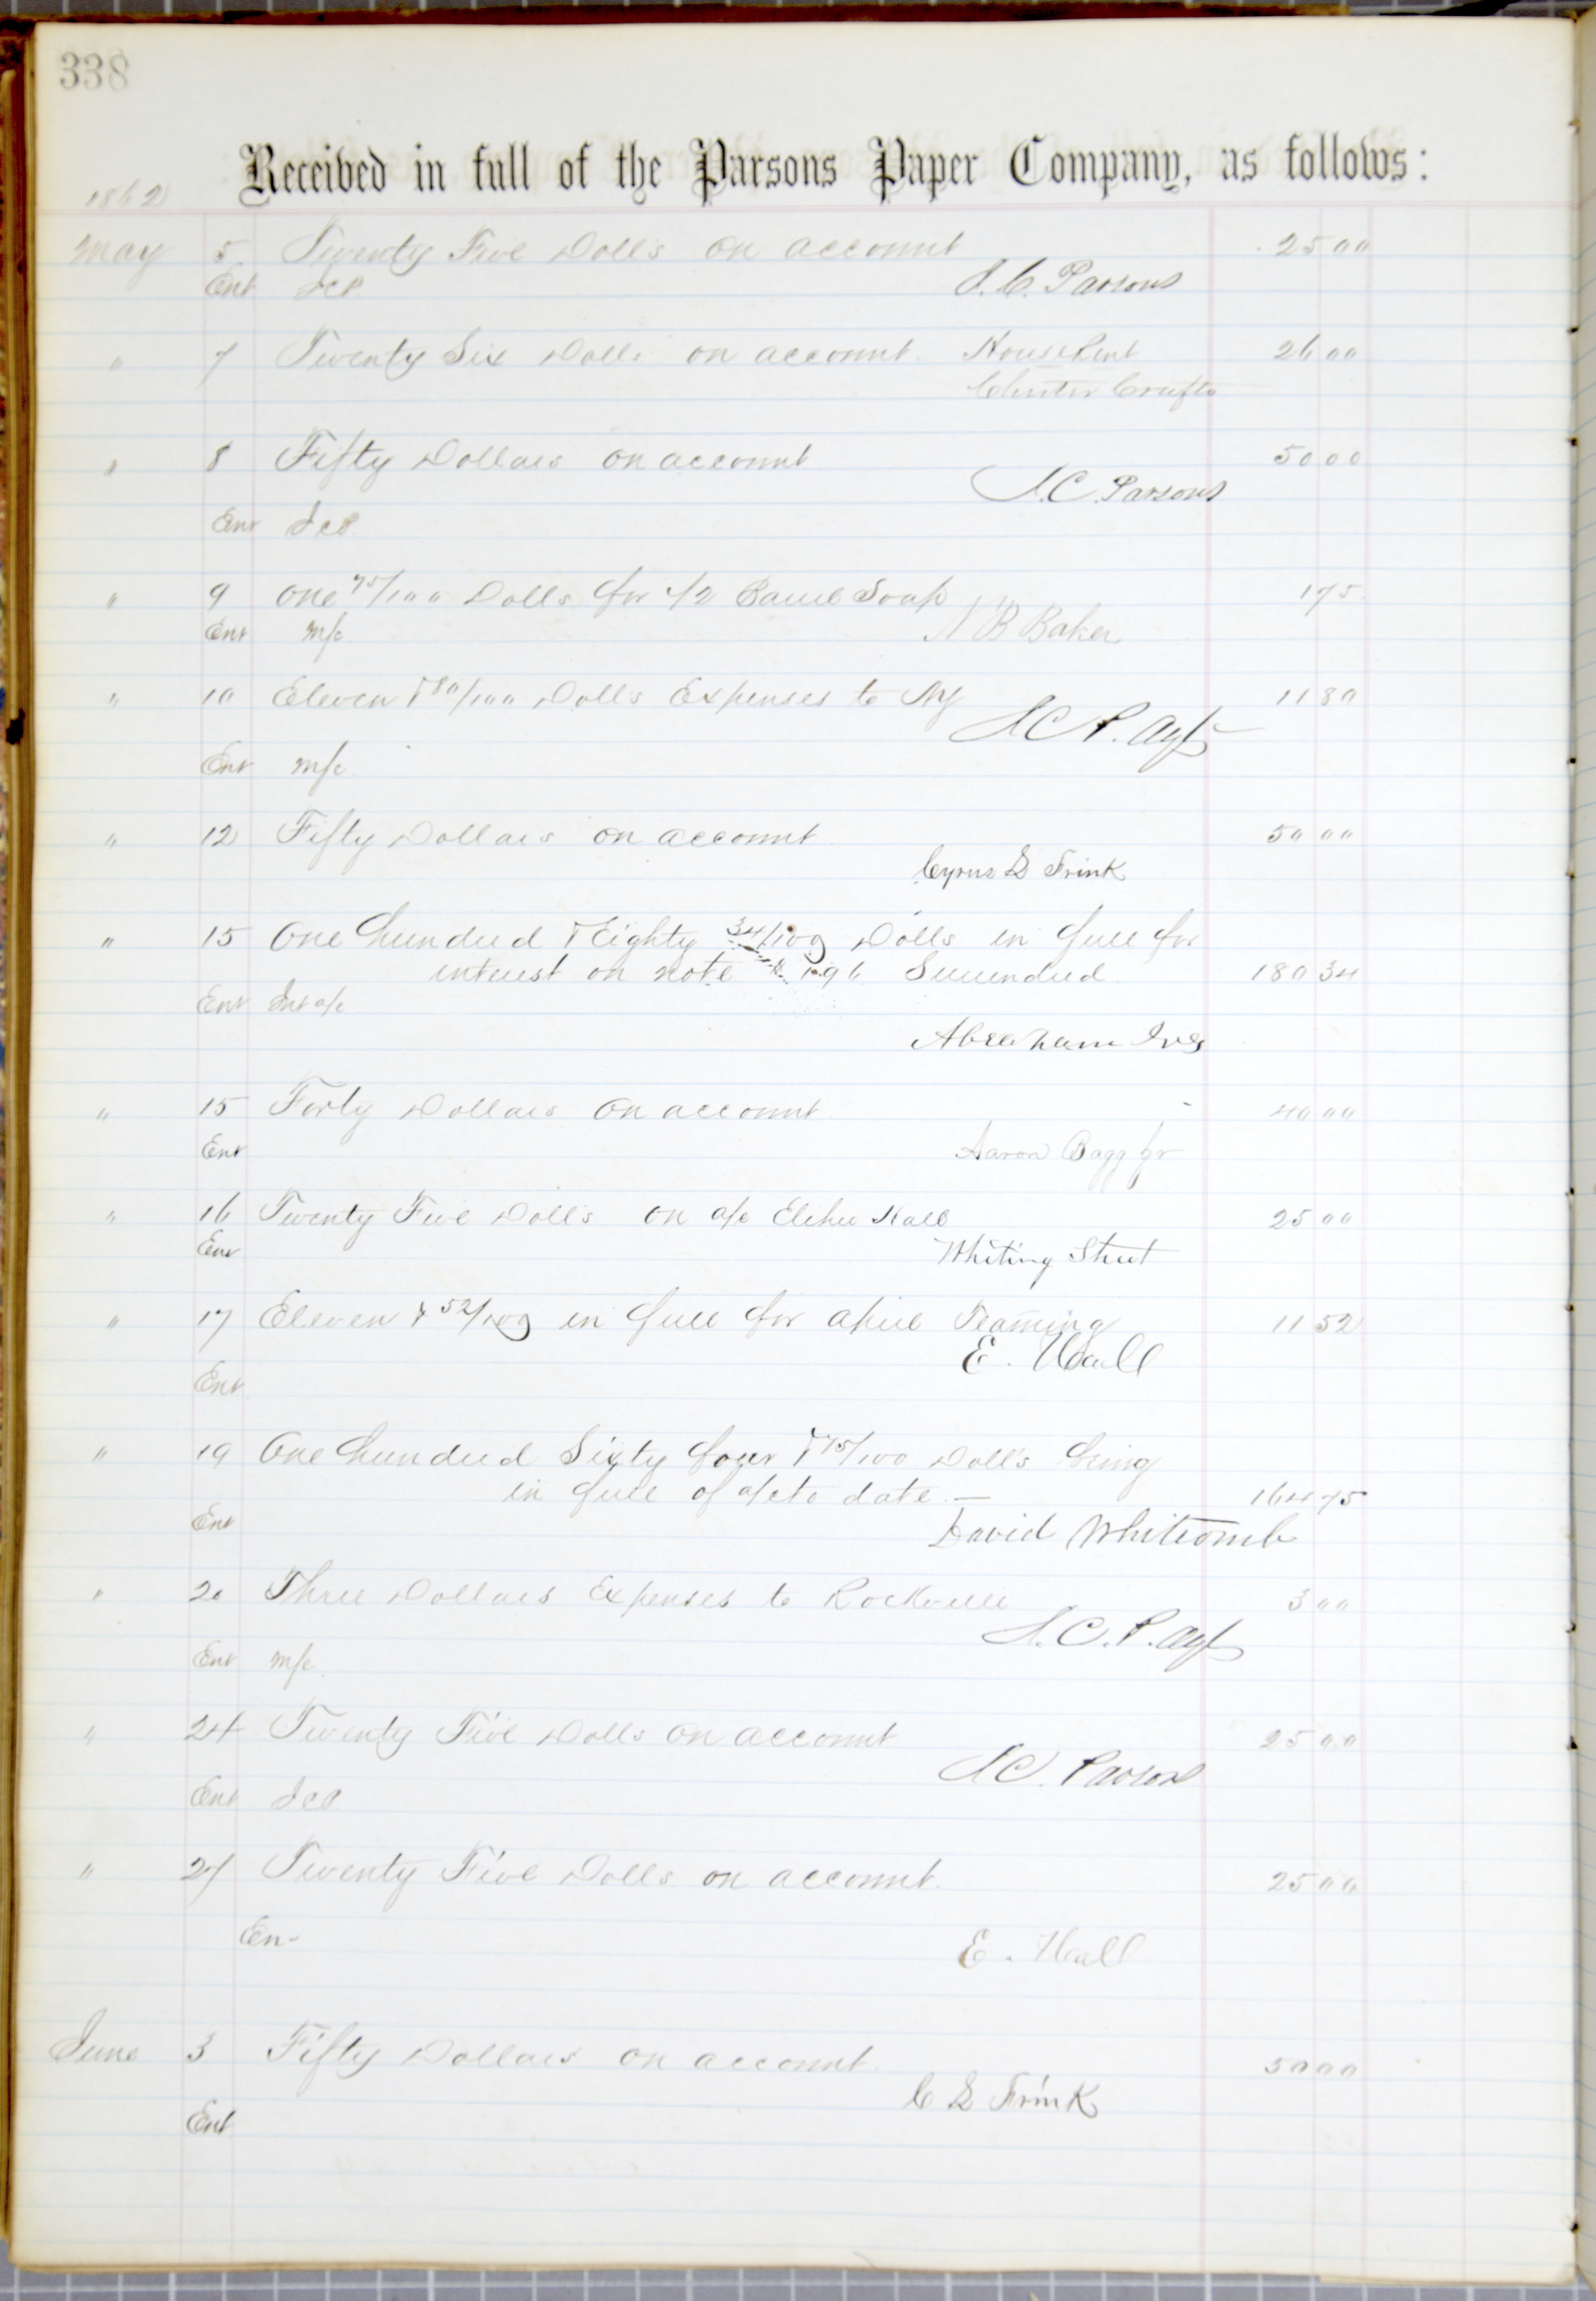 338
Received in full of the Parsons Paper Company, as follows:
1862
May 5 Twenty Five Dolls on account 25 00
Ent JCP J. C. Parsons
" 7 Twenty Six Dolls on account House Rent 26 00
Chester Crafts
" 8 Fifty Dollars on account 50 00
J. C. Parsons
Ent JCP
" 9 One 75/100 Dolls for 1/2 Barrel Soap 1 75
Ent m/c N B Baker
" 10 Eleven & 80/100 Dolls Expenses to NY 11 80
J C P. Agt
Ent m/c
" 12 Fifty Dollars on account 50 00
Cyrus Frink
" 15 One hundred & Eighty 34/100 Dolls in full for
interest on note 196 Surrendered 180 34
Ent Int a/c
Abraham Ives
" 15 Forty Dollars on account 40 00
Ent Aaron Bagg Jr
" 16 Twenty Five Dolls on a/c Elihu Hall 25 00
Ent Whiting Street
" 17 Eleven & 52/100 in full for April Teaming 11 52
E. Hall
Ent
" 19 One hundred Sixty four & 75/100 Dolls being
in full of a/c to date — 164 75
Ent David Whitcomb
" 20 Three Dollars Expenses to Rockville 3 00
J. C. P. Agt
Ent m/c
" 24 Twenty Five Dolls on account 25 00
J C. Parsons
Ent JCP
" 27 Twenty Five Dolls on account 25 00
En- E. Hall
June 3 Fifty Dollars on account 50 00
C Frink
Ent